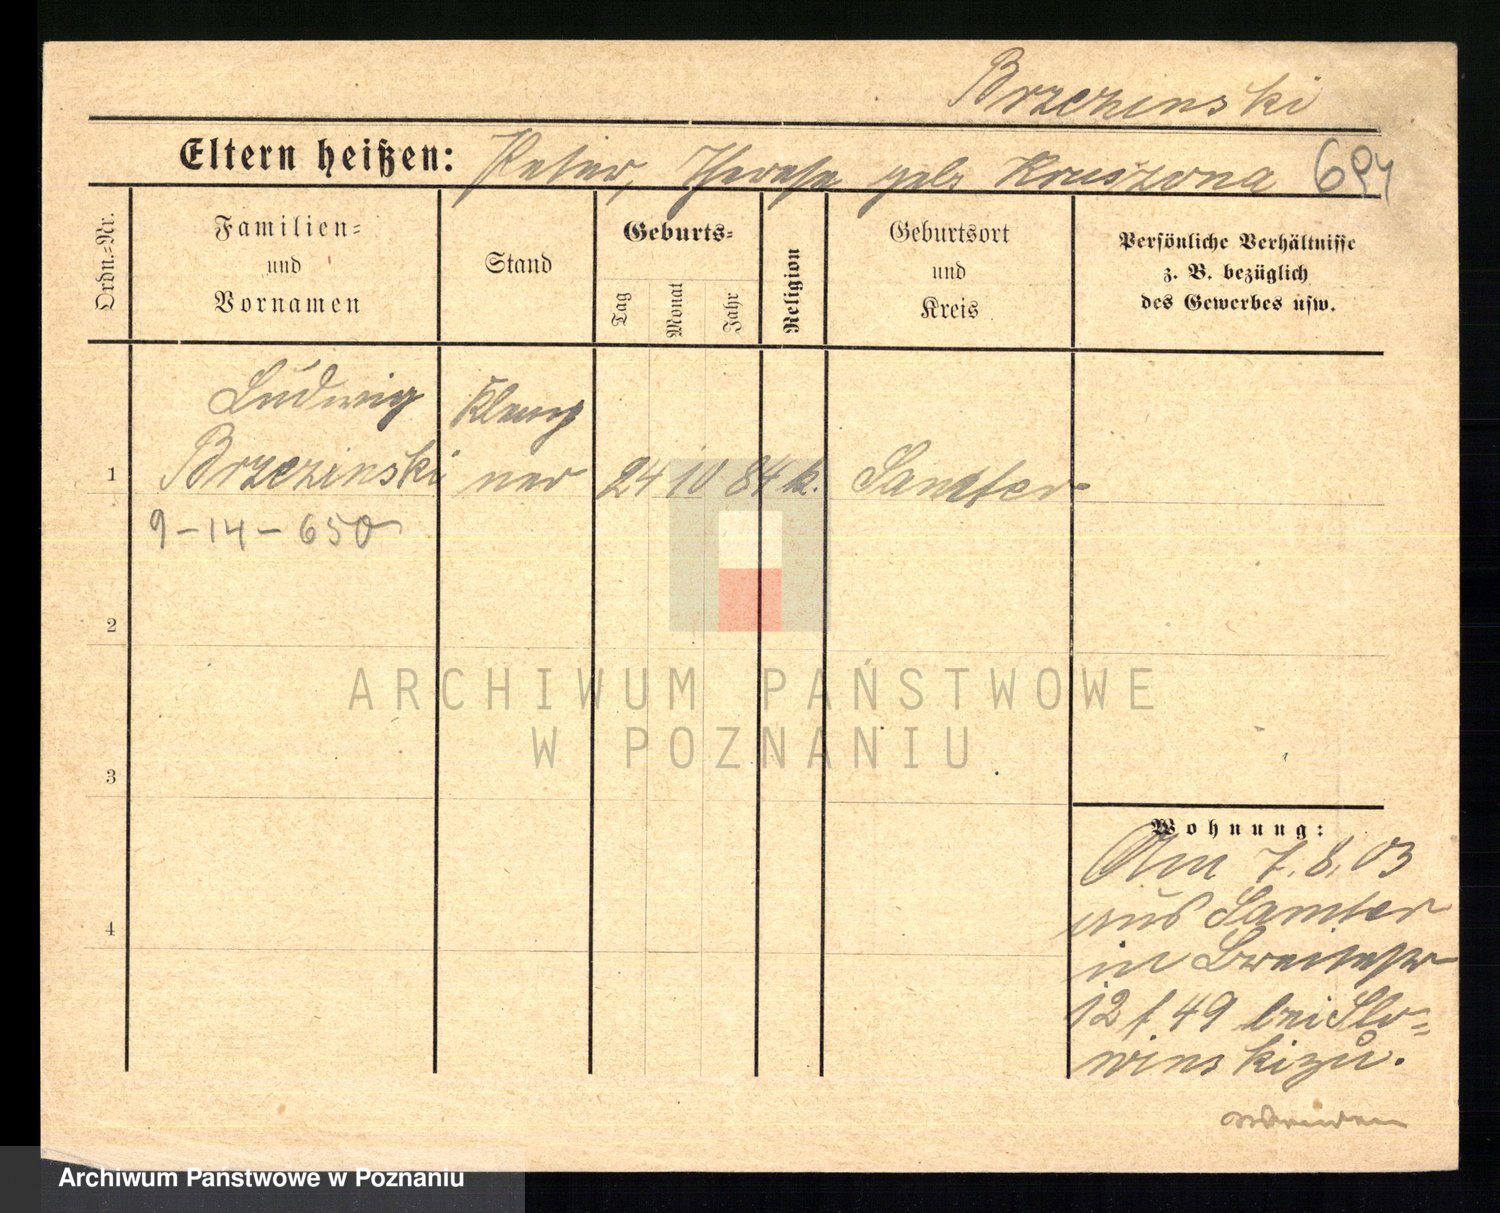 Brzezinski
Eltern heißen: Peter, Therese geb. Kruszona
Ordn.=Nr.
Familien=
und
Vornamen
Stand
Geburts=
Tag
Monat
Jahr
Religion
Geburtsort
und
Kreis
Persönliche Verhältnisse
z. B. bezüglich
des Gewerbes usw.
Ludwig Klemp
1 Brzezinski ner 24 10 84 k. Samter
9-14-650
2
3
4
Wohnung:
Am 7.8.03
aus Samter
in Breitestr
12 f. 49 bei Slo=
winski zu.
ARCHIWUM PAŃSTWOWE
W POZNANIU
Archiwum Państwowe w Poznaniu